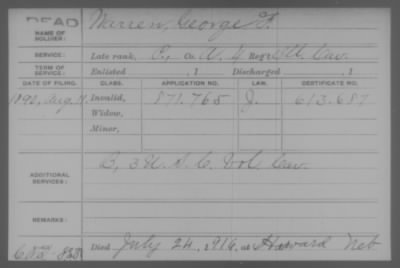 DEAD
NAME OF SOLDIER: Warren, George F.
SERVICE: Late rank, Co. A, 4 Reg't Ill. Cav.
TERM OF SERVICE: Enlisted , 1 Discharged , 1
DATE OF FILING. CLASS. APPLICATION NO. LAW. CERTIFICATE NO.
1890, Aug. Invalid, 871.765 J. 613.687
Widow,
Minor,
ADDITIONAL SERVICES: B, 3 U.S.C. Vol. Cav.
REMARKS:
Died July 24, 1916, at Harvard Neb